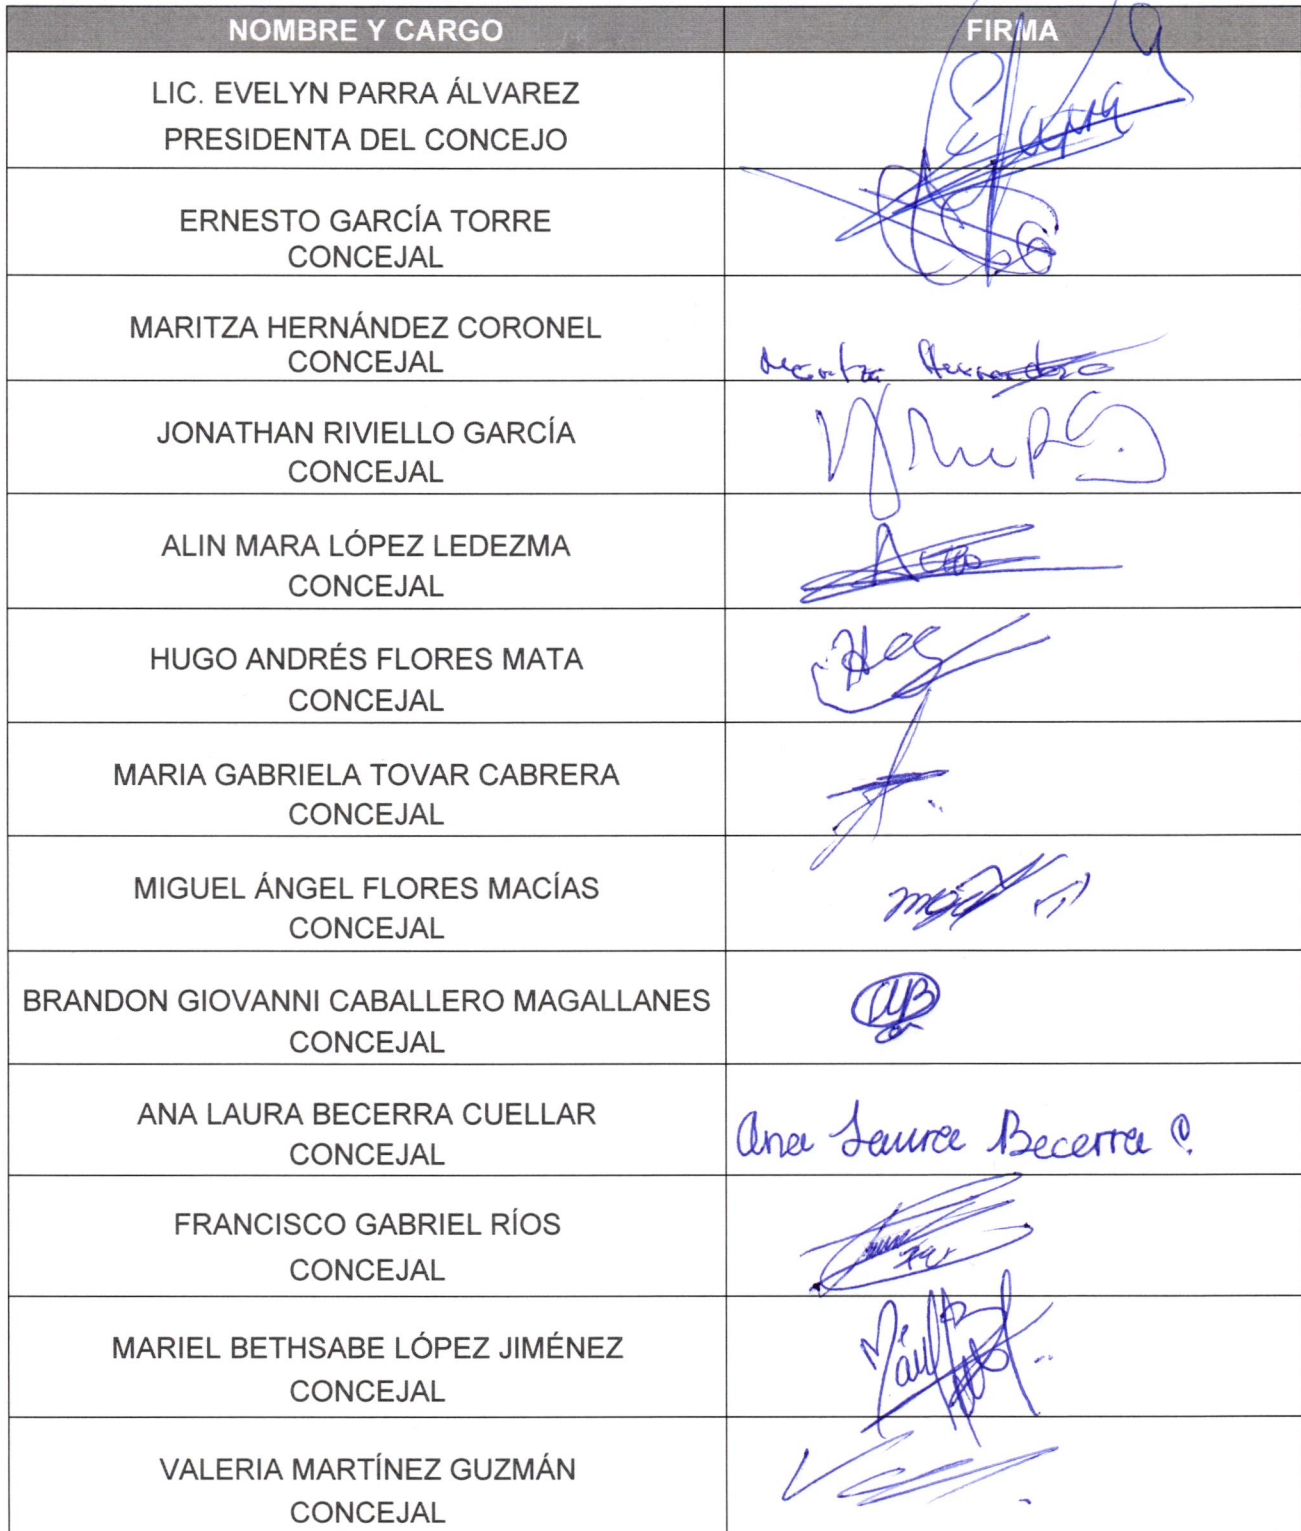 NOMBRE Y CARGO FIRMA
LIC. EVELYN PARRA ÁLVAREZ
PRESIDENTA DEL CONCEJO
ERNESTO GARCÍA TORRE
CONCEJAL
MARITZA HERNÁNDEZ CORONEL
CONCEJAL
Maritza Hernandez
JONATHAN RIVIELLO GARCÍA
CONCEJAL
ALIN MARA LÓPEZ LEDEZMA
CONCEJAL
HUGO ANDRÉS FLORES MATA
CONCEJAL
MARIA GABRIELA TOVAR CABRERA
CONCEJAL
MIGUEL ÁNGEL FLORES MACÍAS
CONCEJAL
BRANDON GIOVANNI CABALLERO MAGALLANES
CONCEJAL
ANA LAURA BECERRA CUELLAR
CONCEJAL
Ana Laura Becerra C.
FRANCISCO GABRIEL RÍOS
CONCEJAL
MARIEL BETHSABE LÓPEZ JIMÉNEZ
CONCEJAL
VALERIA MARTÍNEZ GUZMÁN
CONCEJAL